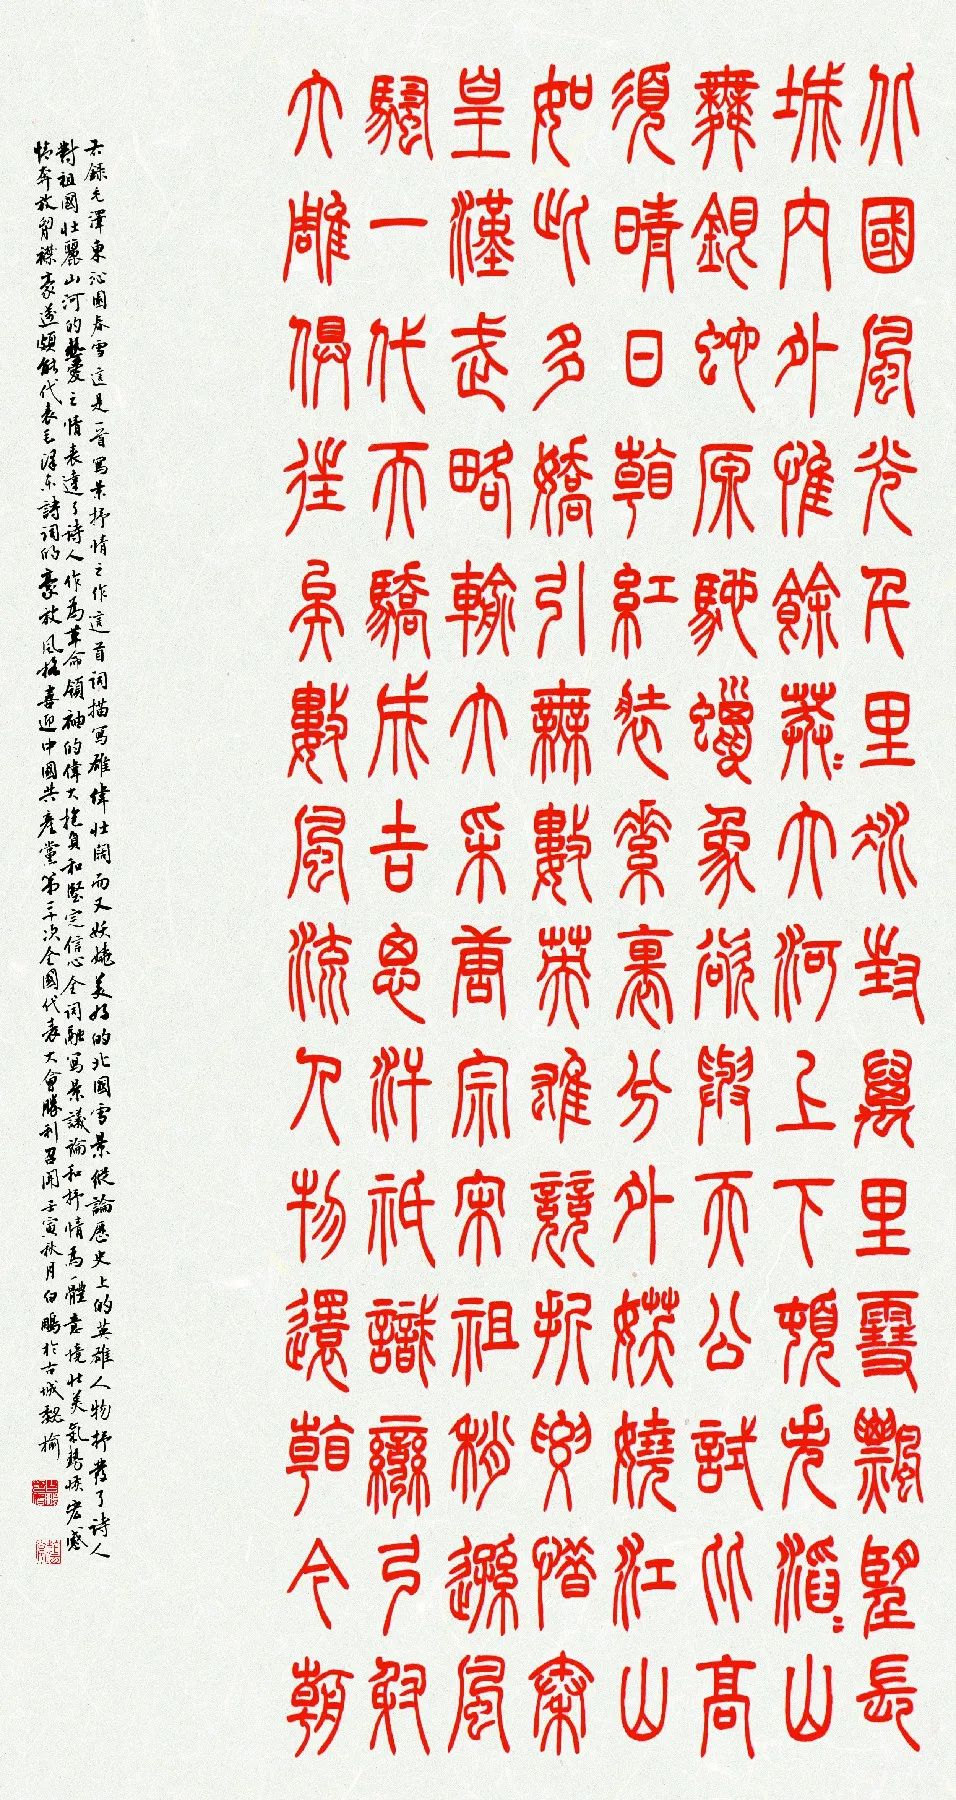 北國風光千里冰封萬里雪飄望長
城內外惟餘莽〻大河上下頓失滔〻山
舞銀蛇原馳蠟象欲與天公試比高
須晴日看紅裝素裹分外妖嬈江山
如此多嬌引無數英雄競折腰惜秦
皇漢武略輸文采唐宗宋祖稍遜風
騷一代天驕成吉思汗祇識彎弓射
大雕俱往矣數風流人物還看今朝
右錄毛澤東沁園春雪這是一首寫景抒情之作這首詞描寫雄偉壯闊而又妖嬈美好的北國雪景縱論歷史上的英雄人物抒發了詩人
對祖國壯麗山河的熱愛之情表達了詩人作為革命領袖的偉大抱負和堅定信心全詞融寫景議論和抒情為一體意境壯美氣勢恢宏感
情奔放胸襟豪邁頗能代表毛澤東詩詞的豪放風格喜迎中國共產黨第二十次全國代表大會勝利召開壬寅秋月白鵬於古城魏榆